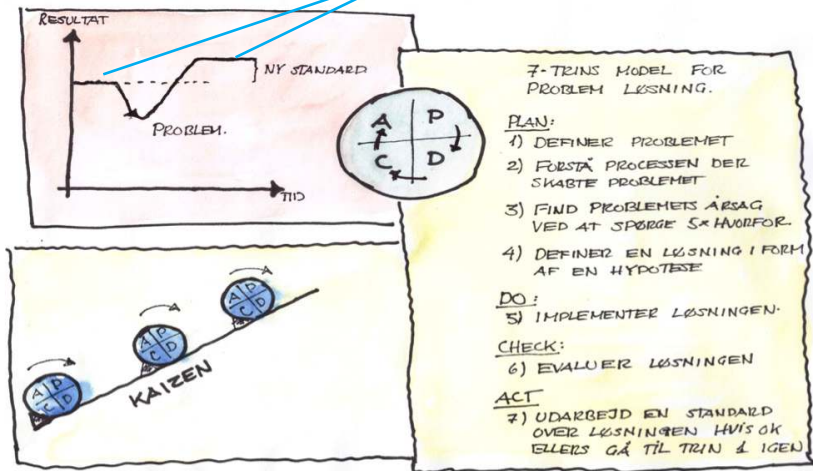 RESULTAT
NY STANDARD
PROBLEM.
TID
A P
C D
A P
C D
A P
C D
A P
C D
KAIZEN
7-TRINS MODEL FOR
PROBLEM LØSNING.
PLAN:
1) DEFINER PROBLEMET
2) FORSTÅ PROCESSEN DER
SKABTE PROBLEMET
3) FIND PROBLEMETS ÅRSAG
VED AT SPØRGE 5x HVORFOR.
4) DEFINER EN LØSNING I FORM
AF EN HYPOTESE
DO:
5) IMPLEMENTER LØSNINGEN.
CHECK:
6) EVALUER LØSNINGEN
ACT
7) UDARBEJD EN STANDARD
OVER LØSNINGEN HVIS OK
ELLERS GÅ TIL TRIN 1 IGEN